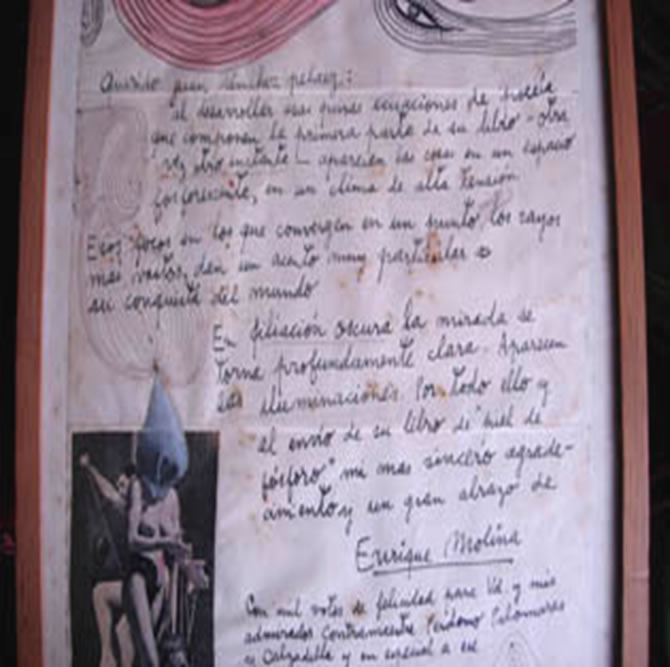 Querido Juan Sánchez Peláez:
al desarrollar esas puras ecuaciones de poesía
que componen la primera parte de su libro - otra
vez otro instante - aparecen las cosas en un espacio
fosforescente, en un clima de alta tensión
Esos focos en los que convergen en un punto los rayos
mas vastos, dan un acento muy particular a
su conquista del mundo
En filiación oscura la mirada se
torna profundamente clara. Aparecen
las iluminaciones. Por todo ello y
el envío de su libro de "piel de
fósforo" mi mas sincero agrade-
cimiento y un gran abrazo de
Enrique Molina
Con mil votos de felicidad para Ud. y mis
admirados Contramaestre Perdomo Palomares
y Calzadilla y en especial a ese